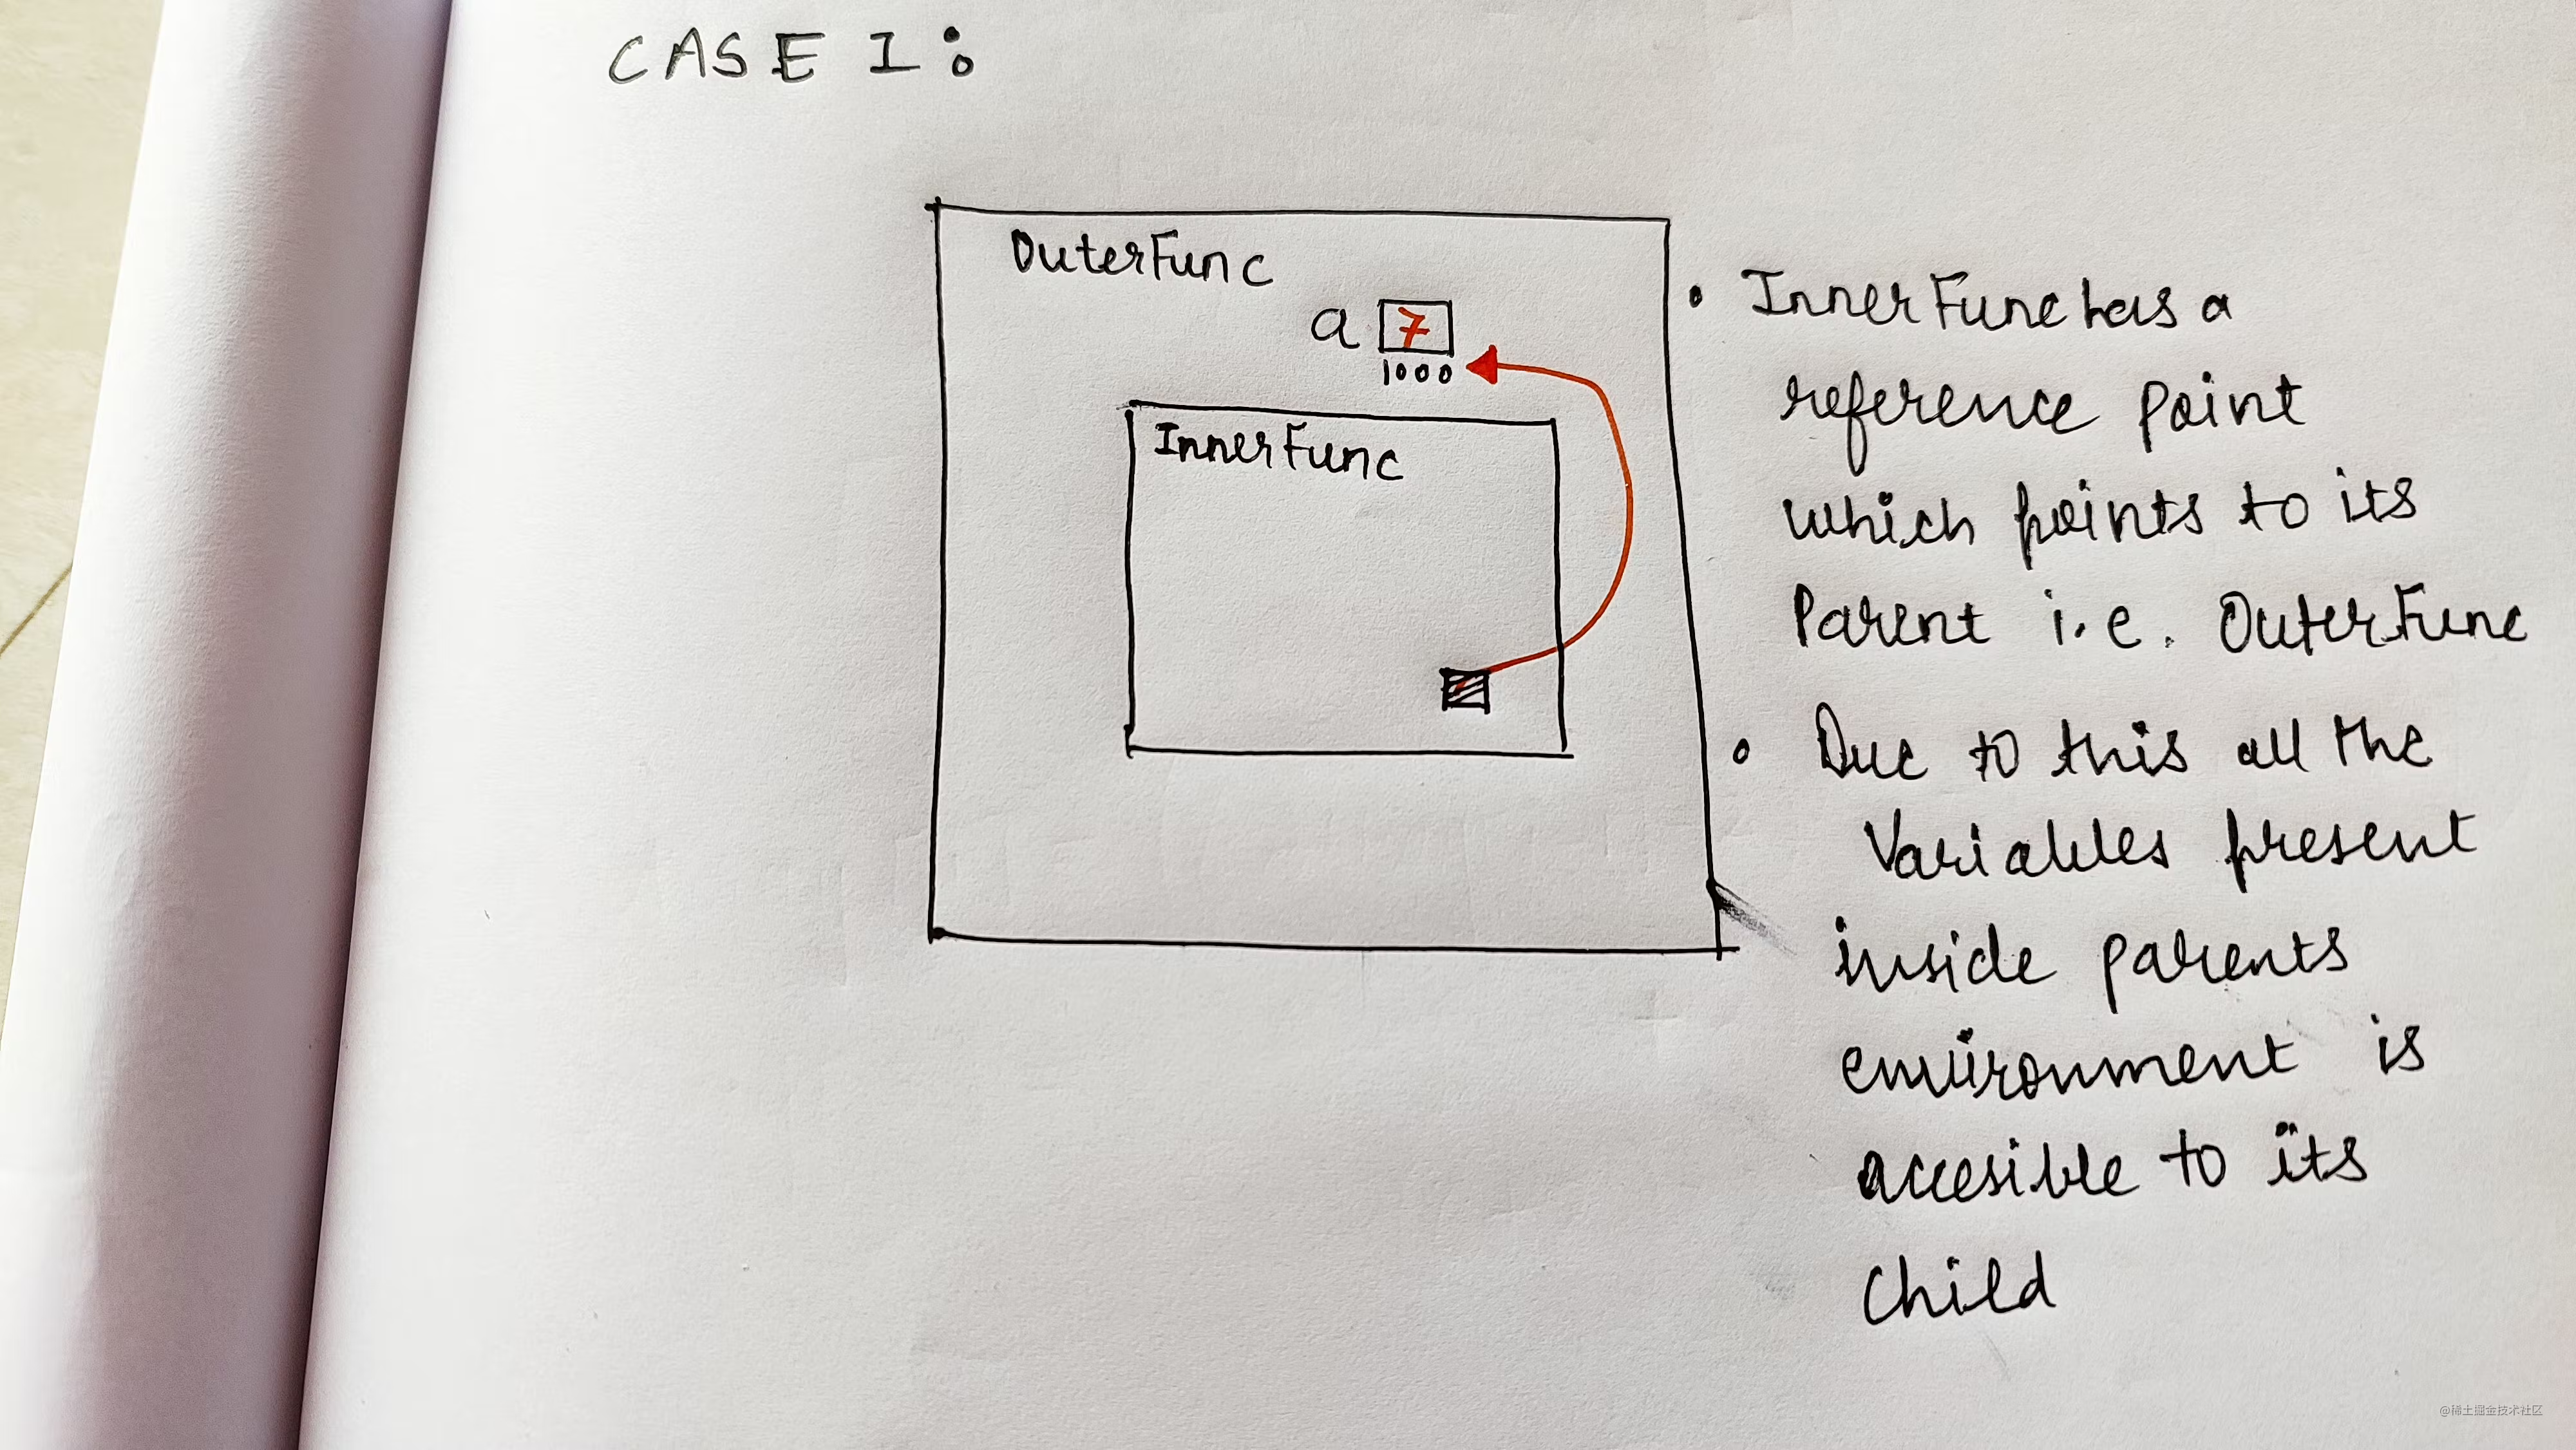 CASE I :
OuterFunc
a 7
1000
InnerFunc
• InnerFunc has a
reference point
which points to its
Parent i.e. OuterFunc
• Due to this all the
Variables present
inside parents
environment is
accesible to its
Child
@稀土掘金技术社区